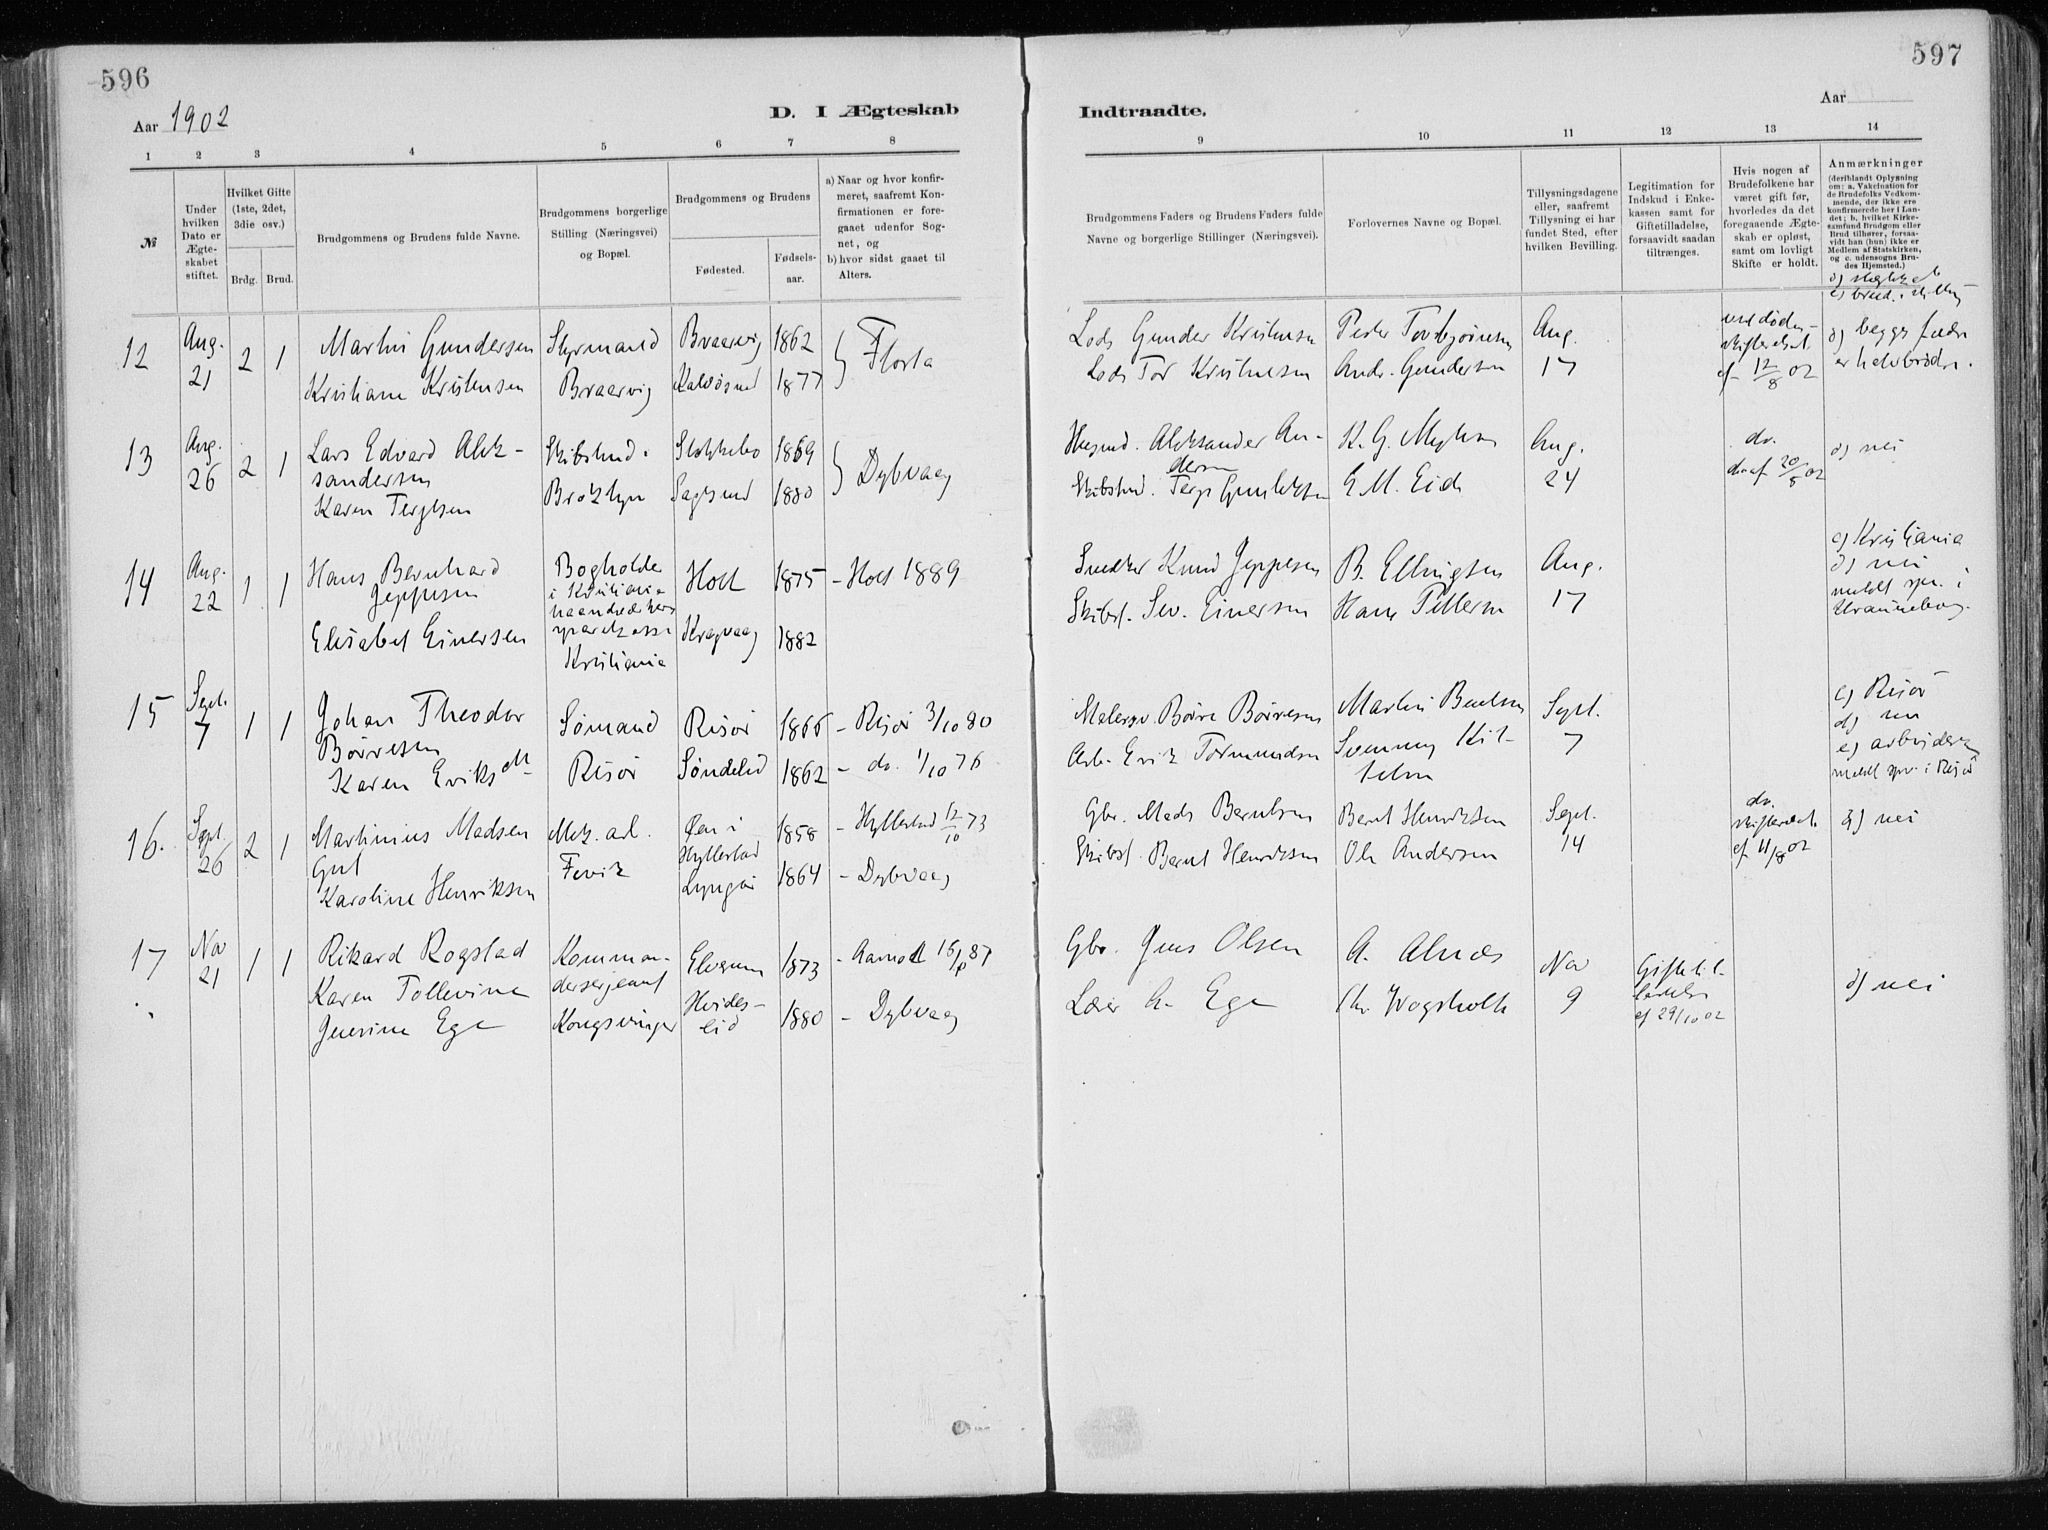 596
Aar 1902
D. I Ægteskab
1 2 3 4 5 6 7 8
№
Under hvilken Dato er Ægteskabet stiftet.
Hvilket Gifte (1ste, 2det, 3die osv.)
Brdg. Brud.
Brudgommens og Brudens fulde Navne.
Brudgommens borgerlige Stilling (Næringsvei) og Bopæl.
Brudgommens og Brudens
Fødested.
Fødselsaar.
a) Naar og hvor konfirmeret, saafremt Konfirmationen er foregaaet udenfor Sognet, og
b) hvor sidst gaaet til Alters.
12 Aug. 21 2 1 Martin Gundersen Styrmand Braarvig 1862 } Flosta
Kristiane Kristensen Braarvig Kalvøsund 1877
13 Aug. 26 2 1 Lars Edvard Alek-
sandersen
Karen Terjesen
1869
Sagesund 1880 } Dybvaag
14 Aug. 22 1 1 Hans Bernhard
Jeppesen
Bogholder
i Kristiania
Holt 1875 - Holt 1889
Elisabet Einersen Kristiania Kragvaag 1882
15 Sept. 7 1 1 Johan Theodor
Børresen
Sømand Risør 1866 - Risør 3/10 80
Karen Eriksdt Risør Søndeled 1862 - do. 1/10 76
16. Sept. 26 2 1 Martinius Madsen
Mek. arb. Øen i
Hyllestad 1858 - Hyllestad 12/10 73
Karoline Henriksen Fevik Lyngør 1864 - Dybvaag
17 Nov 21 1 1 Rikard Rogstad Komman-
dersergeant
Elverum 1873 - Aamodt
Karen Tollevine
Jensine Ege Kongsvinger Hvides-
eid 1880 - Dybvaag
597
Aar
Indtraadte.
9 10 11 12 13 14
Brudgommens Faders og Brudens Faders fulde Navne og borgerlige Stillinger (Næringsvei).
Forlovernes Navne og Bopæl.
Tillysningsdagene eller, saafremt Tillysning ei har fundet Sted, efter hvilken Bevilling.
Legitimation for Indskud i Enkekassen samt for Giftetilladelse, forsaavidt saadan tiltrænges.
Hvis nogen af Brudefolkene har været gift før, hvorledes da det foregaaende Ægteskab er opløst, samt om lovligt Skifte er holdt.
Anmærkninger (deriblandt Oplysning om: a. Vakcination for de Brudefolks Vedkommende, der ikke ere konfirmerede her i Landet; b. hvilket Kirkesamfund Brudgom eller Brud tilhører, forsaavidt han (hun) ikke er Medlem af Statskirken, og c. udensogns Brudes Hjemsted.)
Lods Gunder Kristensen Peder Torbjørnsen Aug. 17
ved døden
skifteattest
af 12/8 02
d) begges fædre
er halvbrødre.
Lods Tor Kristensen Andr. Gundersen
Aleksander An-
dersen
Aug. 24
do.
do af 20/8 02
d) nei
E. M. Eide
Snedker Knud Jeppesen B. Ellingsen Aug. 17
c) Kristiania
d) nei
Skibsf. Sev. Einersen Hans Pettersen
Børre Børresen Martin Bentsen Sept. 7
c) Risør
d) nei
Arb. Erik Tormundsen
Gbr. Mads Berntsen Bernt Henriksen Sept. 14
do.
skifteattest
af 11/8 02
d) nei
Skibsf. Bernt Henriksen Ole Andersen
Gbr. Jens Olsen A. Alnæs Nov 9
Giftetil-
ladelse
af 29/10 02
d) nei